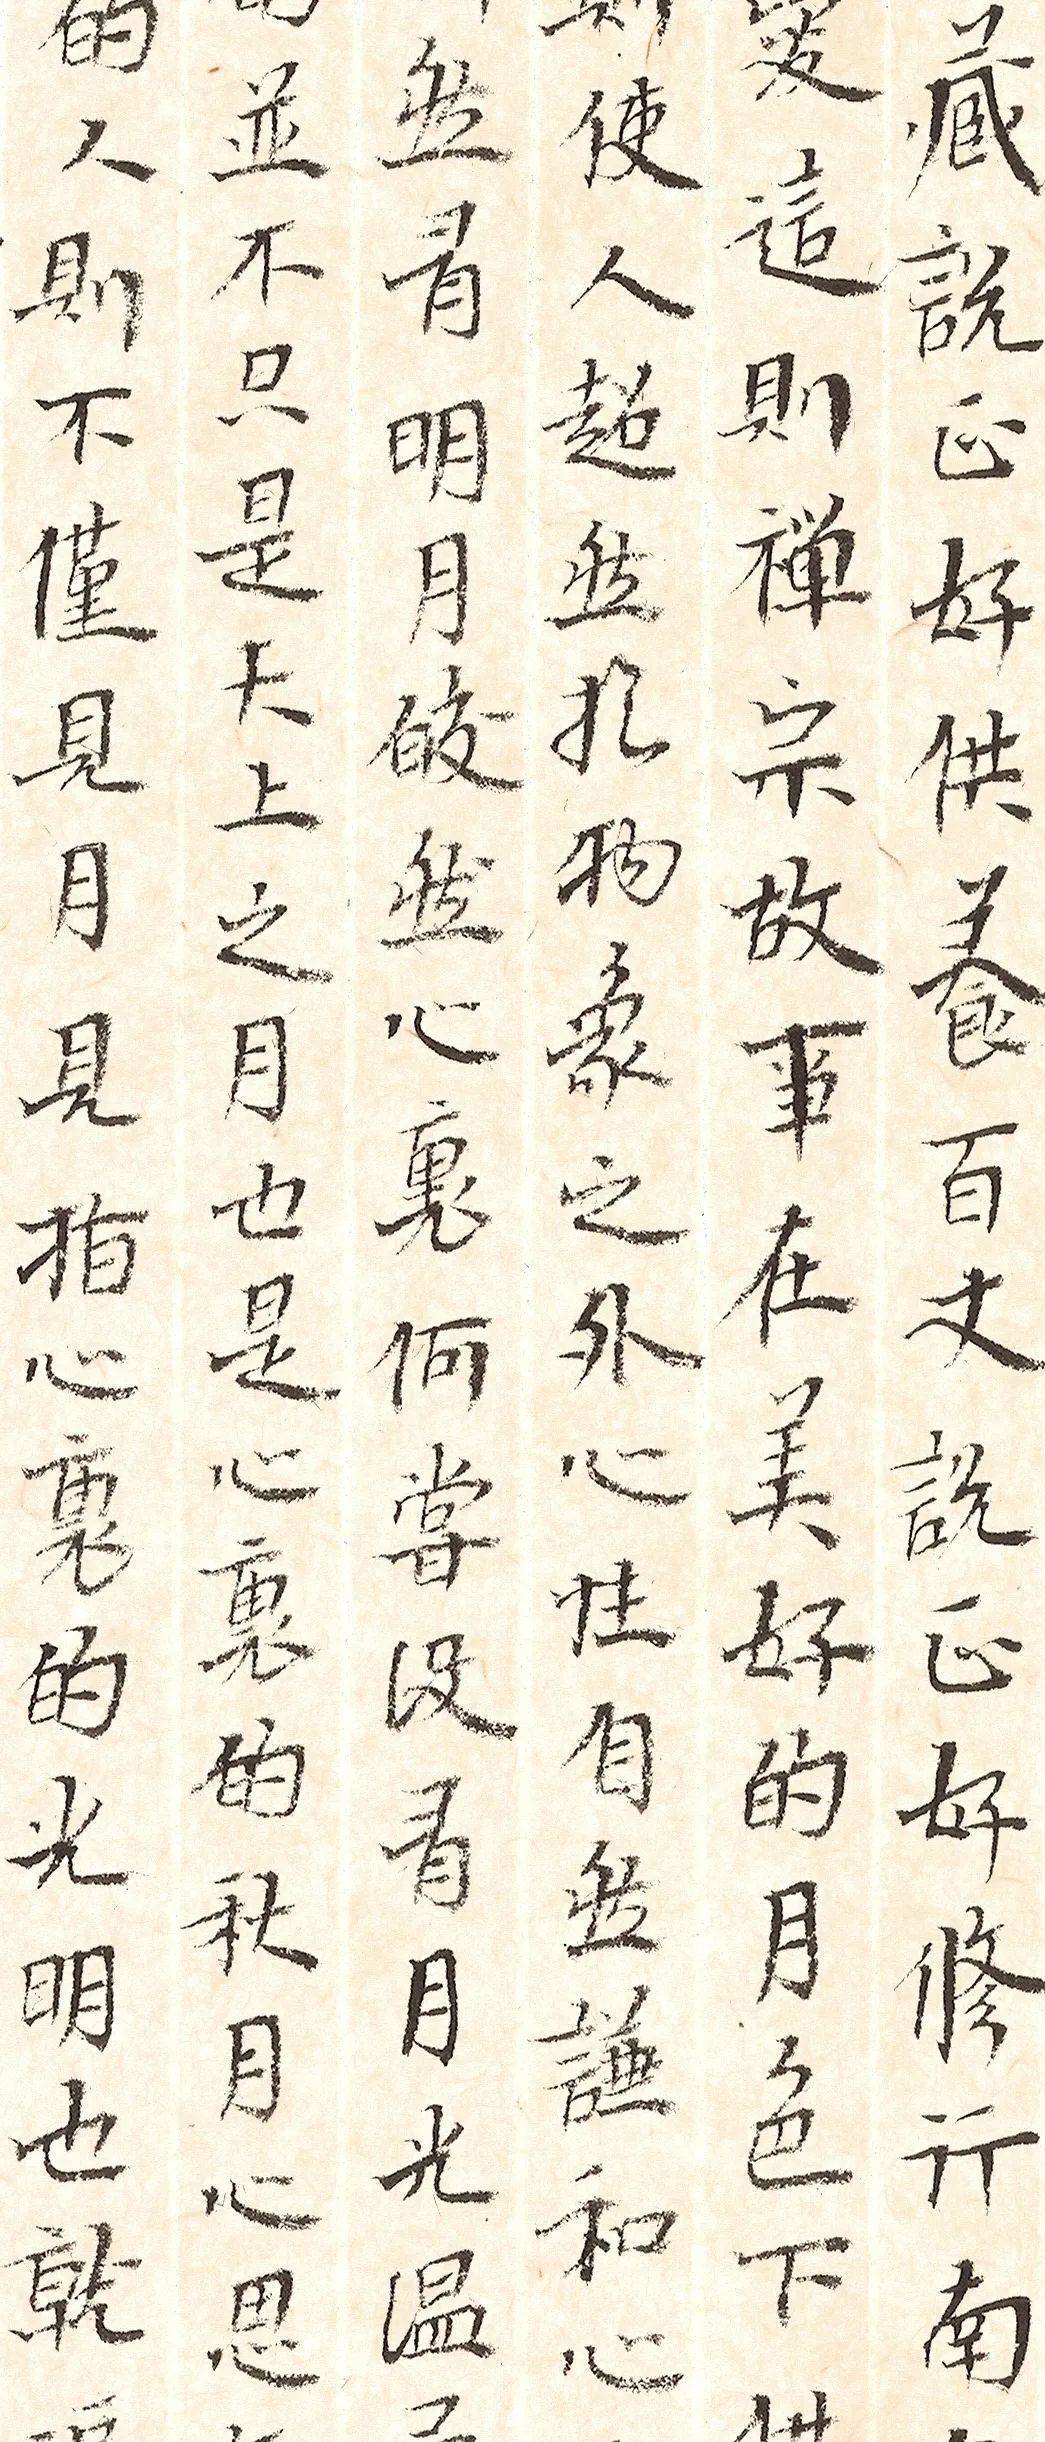 藏說正好供養百丈說正好修行南
愛這則禪宗故事在美好的月色下供
則使人超然於物象之外心性自然謙和心
然有明月皎然心裏何嘗沒有月光溫柔
的並不只是天上之月也是心裏的秋月心思
的人則不僅見月見指心裏的光明也就